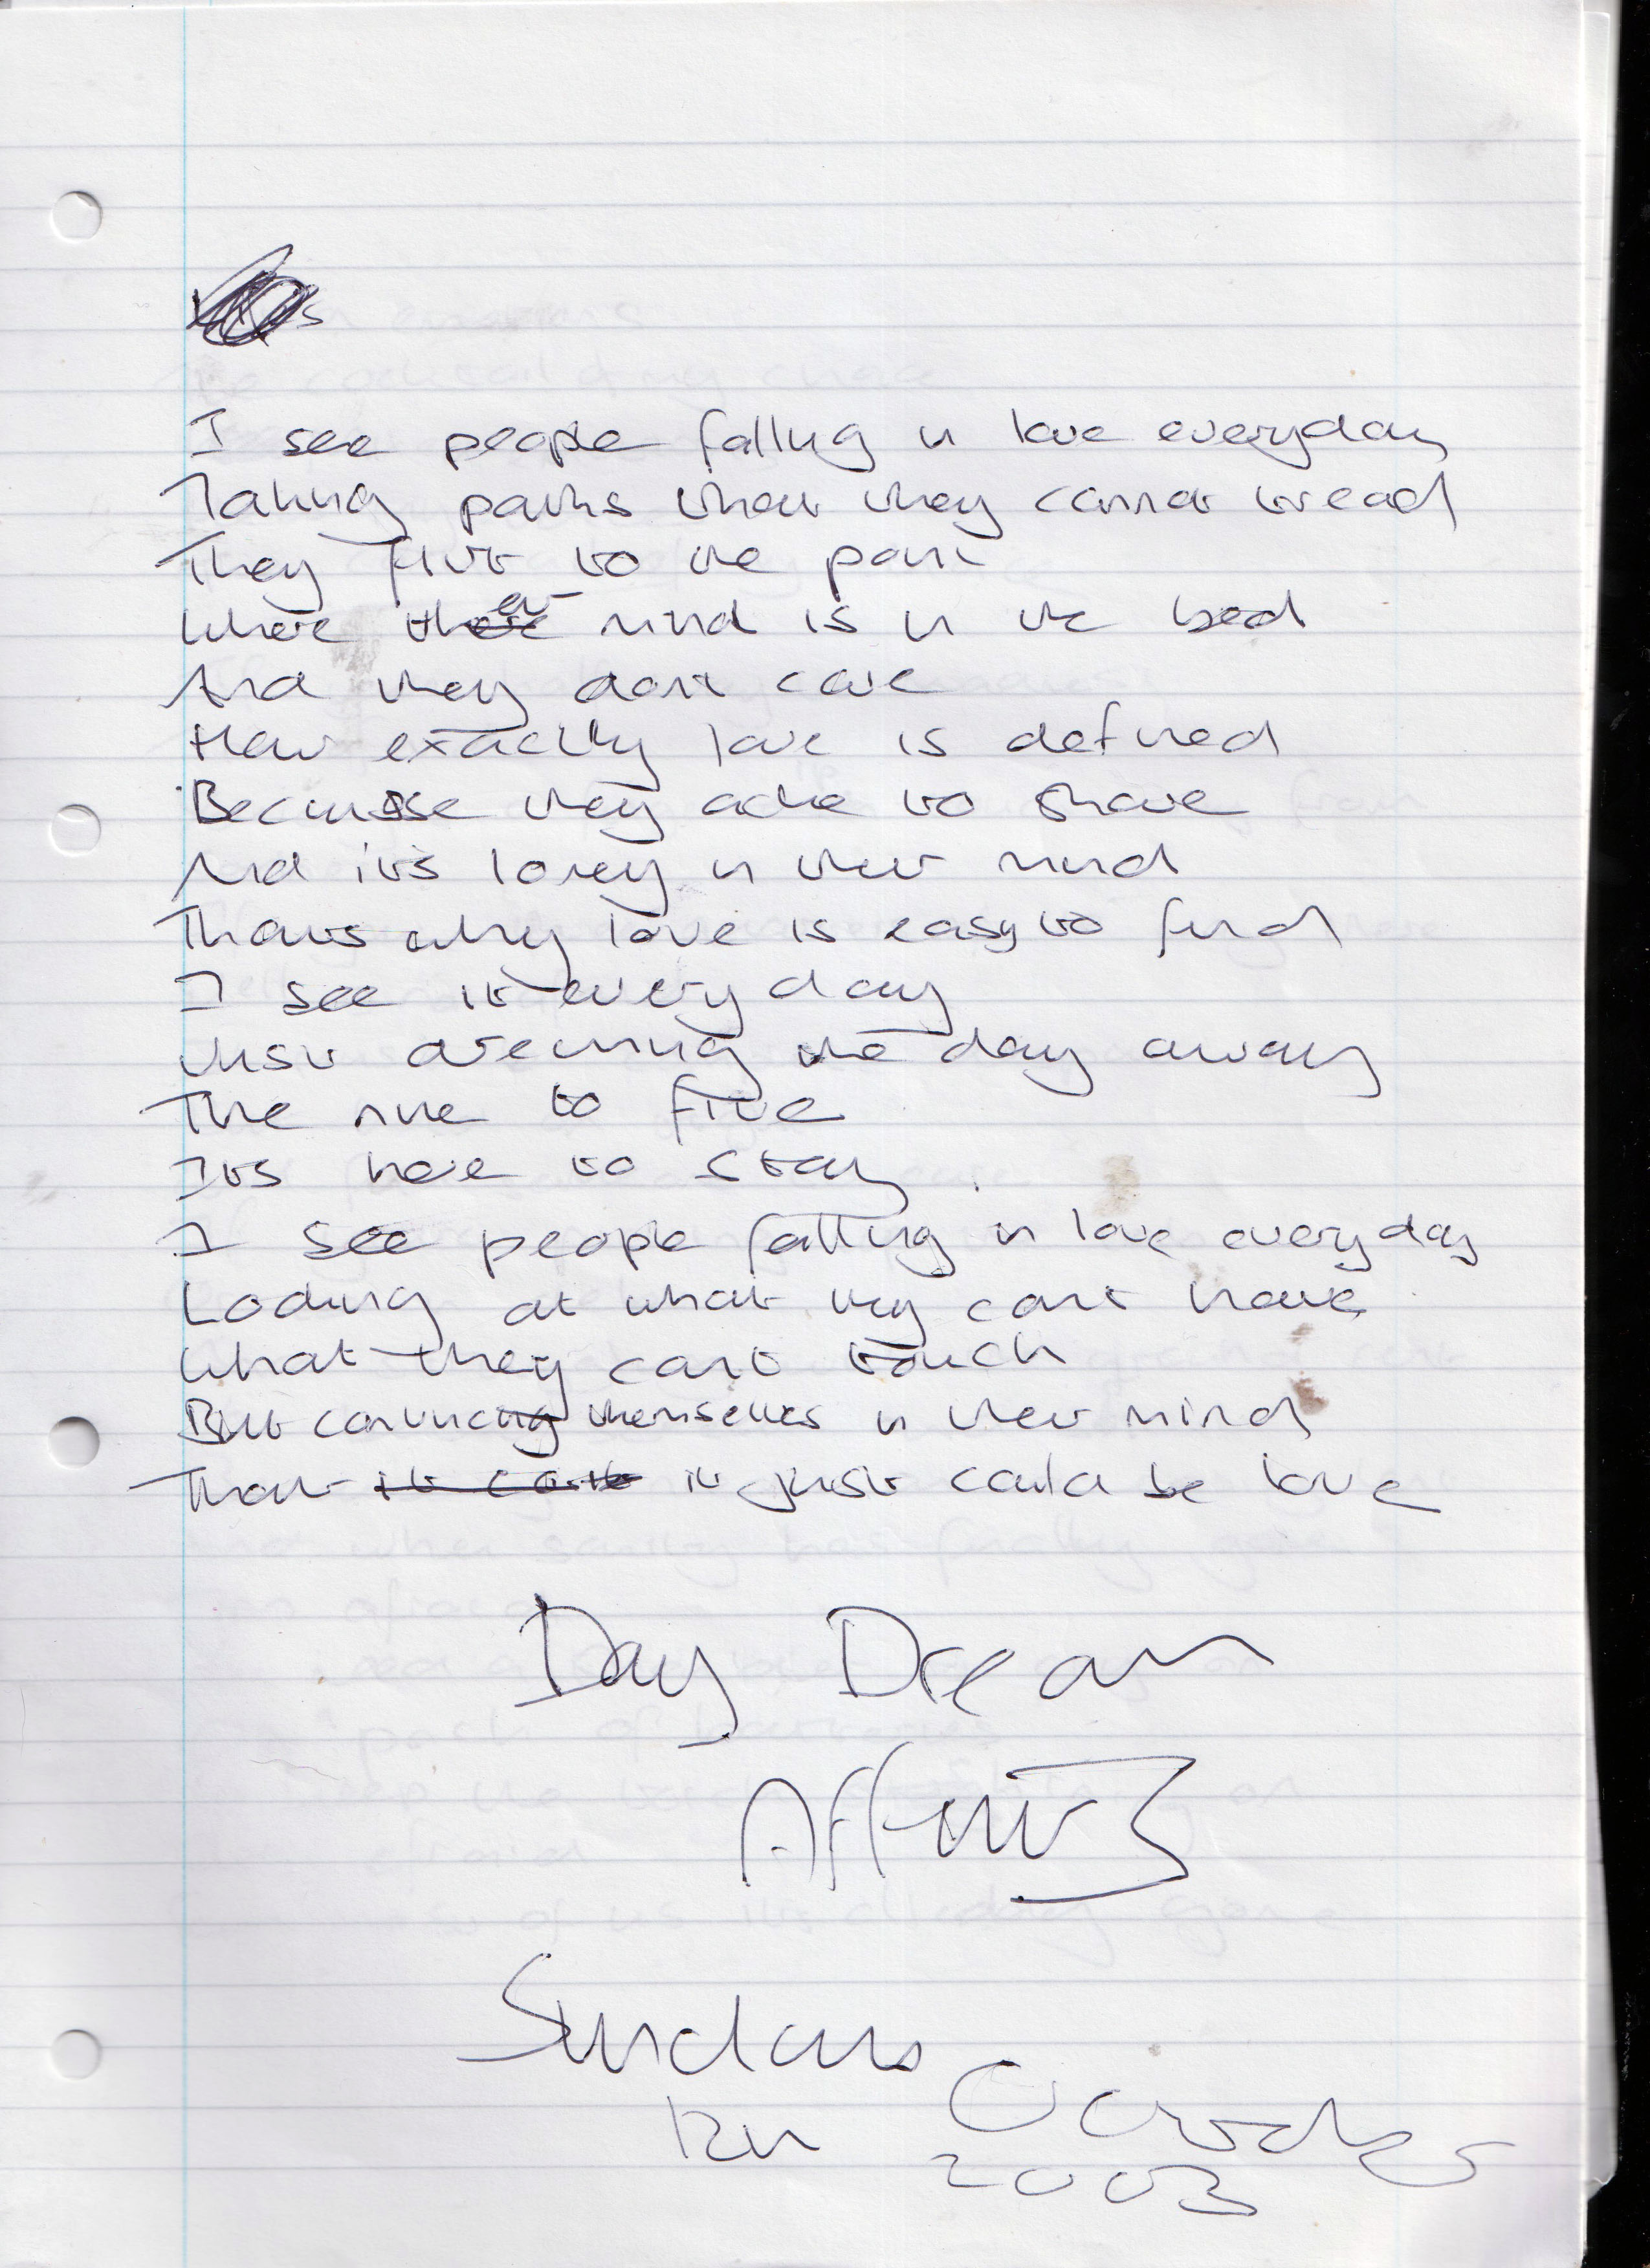 I see people falling in love everyday
Taking paths that they cannot tread
They flirt to the point
Where their mind is in the bed
And they dont care
How exactly love is defined
Because they ache to share
And it's lonely in their mind
Thats why love is easy to find
I see it everyday
Just dreaming the day away
The nine to five
Its here to stay
I see people falling in love everyday
Looking at what they cant have
What they cant touch
But convincing themselves in their mind
That it just could be love
Day Dream
Affinity
Sunday
12th October
2003